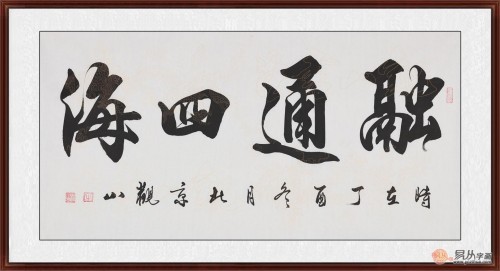 融通四海
時在丁酉冬月北京觀山
易从字画